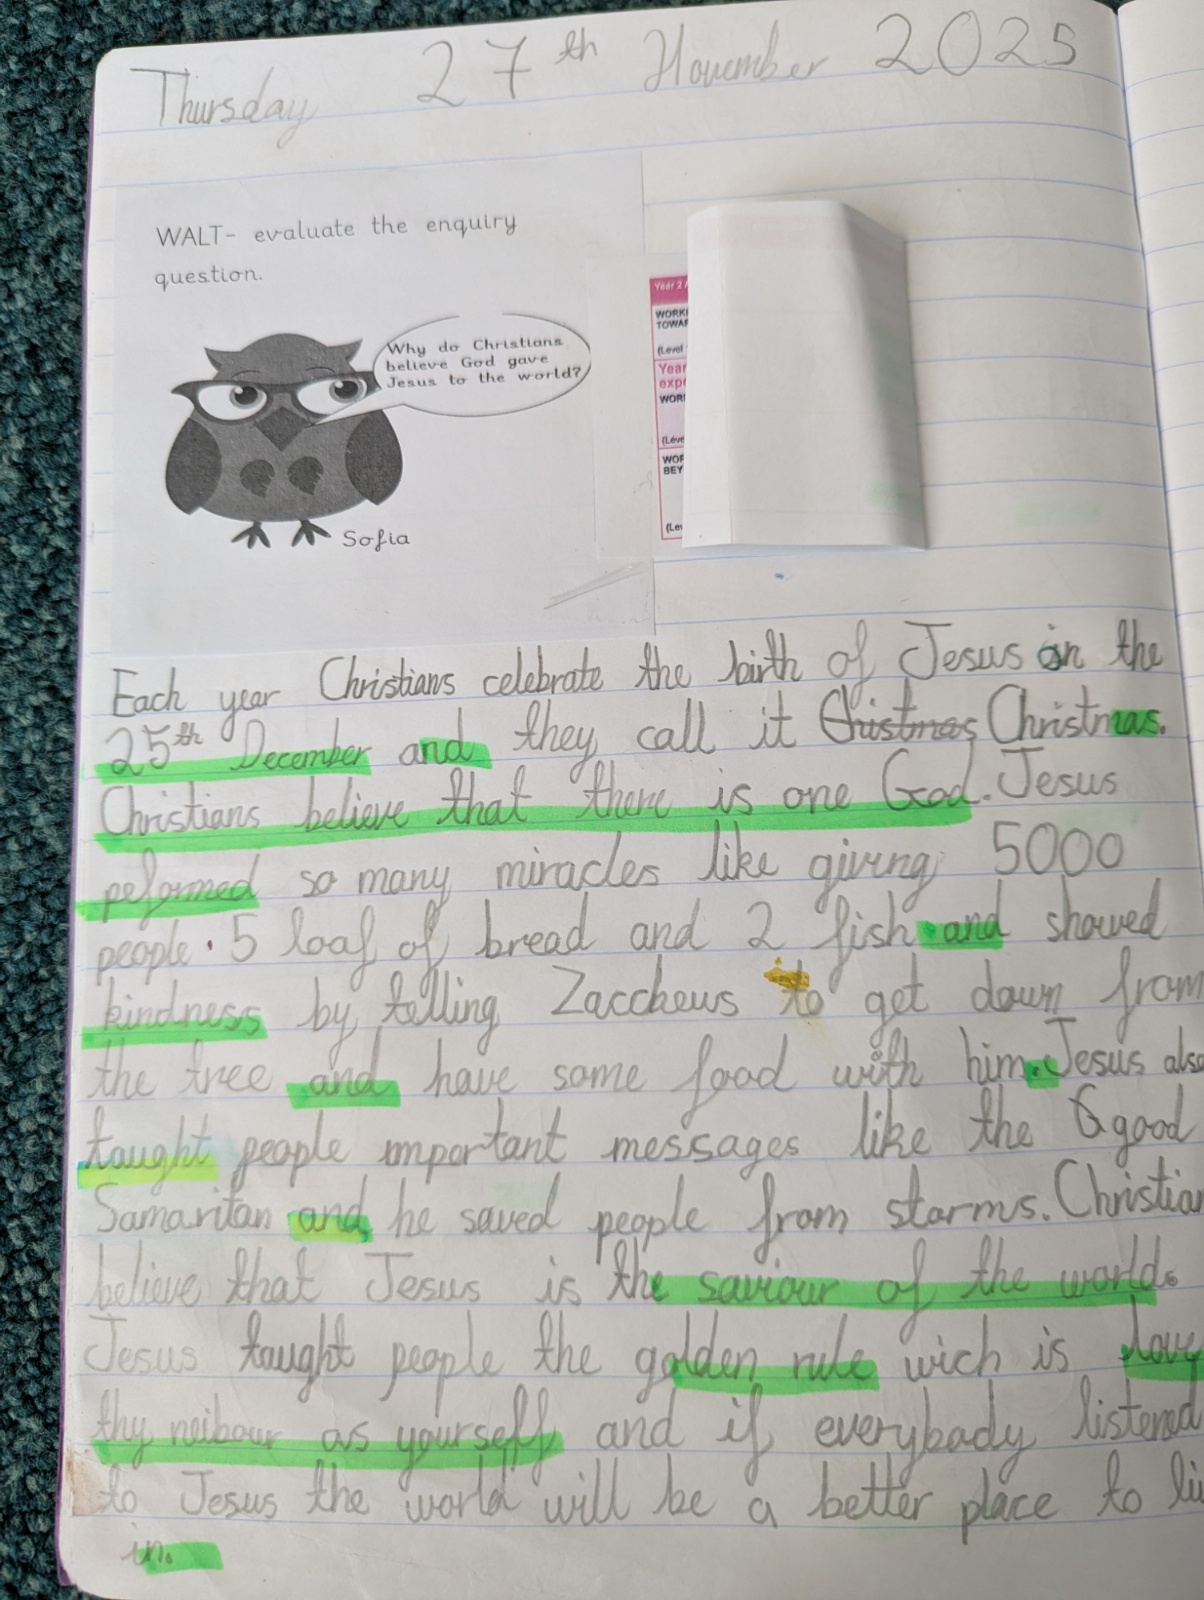 Thursday 27th November 2025
WALT- evaluate the enquiry
question.
Why do Christians
believe God gave
Jesus to the world?
Sofia
Year 2
WORKI
TOWAR
(Level
Year
expr
WORI
(Leve
WOR
BEY
(Lev
Each year Christians celebrate the birth of Jesus on the
25th December and they call it Christmas Christmas.
Christians believe that there is one God. Jesus
peformed so many miracles like giving 5000
people. 5 loaf of bread and 2 fish and showed
kindness by telling Zaccheus to get down from
the tree and have some food with him. Jesus also
taught people important messages like the Ggood
Samaritan and he saved people from storms. Christian
believe that Jesus is the saviour of the world.
Jesus taught people the golden rule wich is love
thy neibour as yourself and if everybody listened
to Jesus the world will be a better place to li
in.